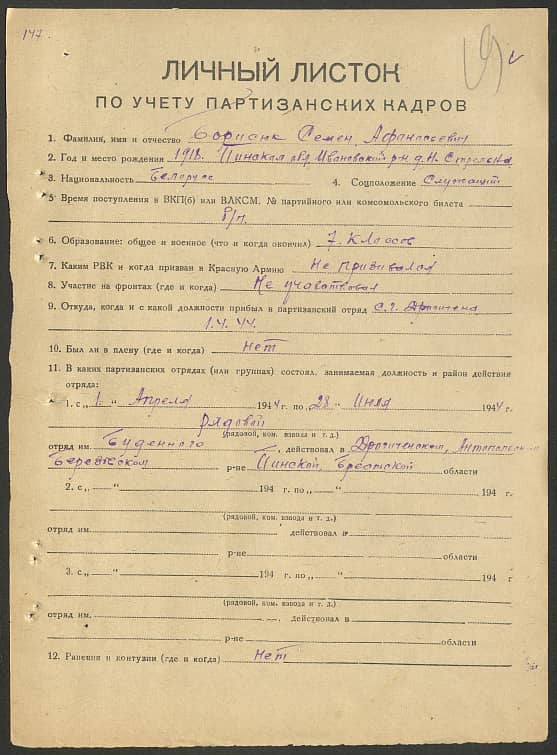 147.
ЛИЧНЫЙ ЛИСТОК
ПО УЧЕТУ ПАРТИЗАНСКИХ КАДРОВ
1. Фамилия, имя и отчество Борисюк Семен Афанасьевич
2. Год и место рождения 1918. Пинская обл. Ивановский р-н д. Н. Стрельна
3. Национальность Беларус 4. Соцположение Служащий
5. Время поступления в ВКП(б) или ВЛКСМ, № партийного или комсомольского билета
б/п.
6. Образование: общее и военное (что и когда окончил) 7 классов
7. Каким РВК и когда призван в Красную Армию Не призивался
8. Участие на фронтах (где и когда) Не участвовал
9. Откуда, когда и с какой должности прибыл в партизанский отряд
1.4.44.
10. Был ли в плену (где и когда) Нет
11. В каких партизанских отрядах (или группах) состоял, занимаемая должность и район действия
отряда:
1. с „1.“ Апреля 1944 г. по „28“ Июля 1944 г.
рядовой
(рядовой, ком. взвода и т. д.)
отряд им. Буденного, действовал в Дрогиченском, Антопольском
Березовском р-не Пинской, Брестской области
2. с „ “ 194 г. по „ “ 194 г.
(рядовой, ком. взвода и т. д.)
отряд им. действовал в
р-не области
3. с „ “ 194 г. по „ “ 194 г
(рядовой, ком. взвода и т. д.)
отряд им. действовал в
р-не области
12. Ранения и контузии (где и когда) Нет